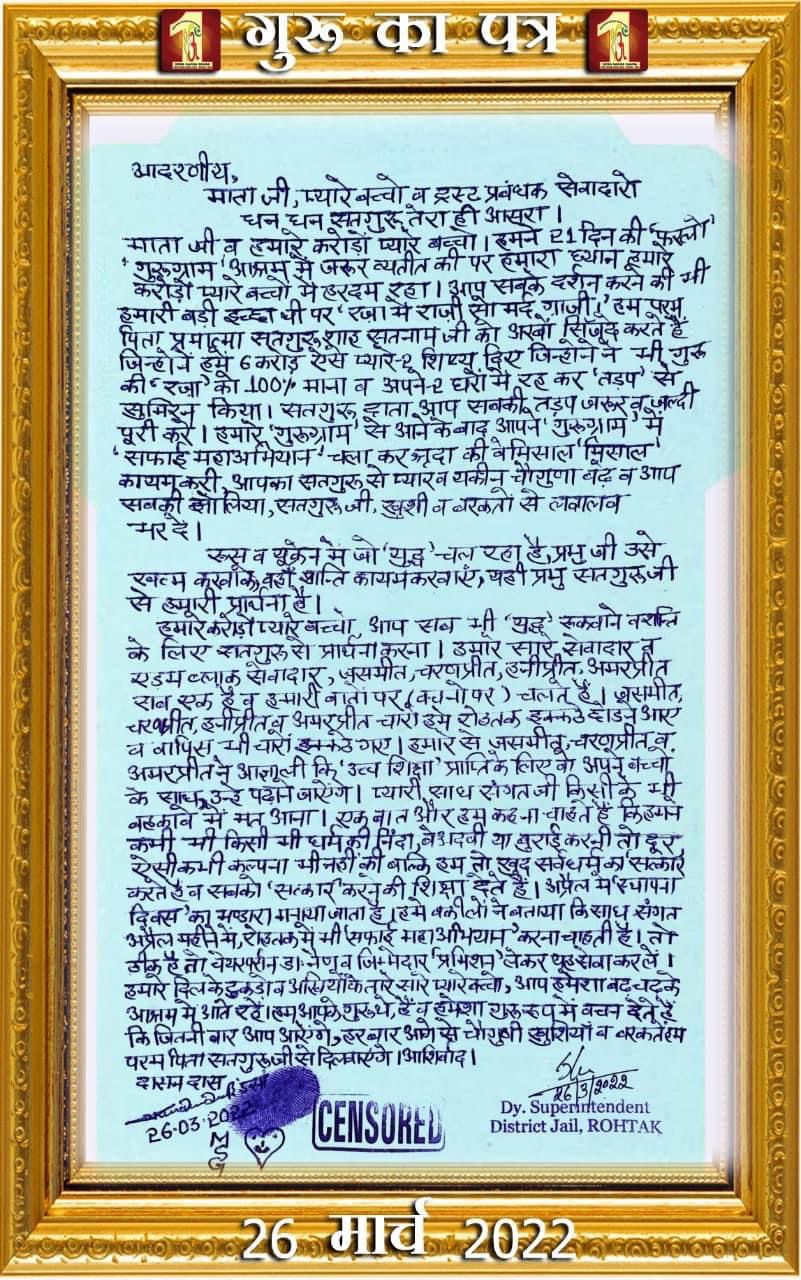 गुरू का पत्र
आदरणीय,
माता जी, प्यारे बच्चो व ट्रस्ट प्रबंधक सेवादारो
धन धन सतगुरू तेरा ही आसरा।
माता जी व हमारे करोड़ों प्यारे बच्चो। हमने 21 दिन की 'फरलो'
'गुरूग्राम' आश्रम में जरूर व्यतीत की पर हमारा ध्यान हमारे
करोड़ों प्यारे बच्चों में हरदम रहा। आप सबके दर्शन करने की भी
हमारी बड़ी इच्छा थी पर 'रजा में राजी सो मर्द गाजी।' हम परम
पिता प्रमात्मा सतगुरू शाह सतनाम जी को अरबों सिजदे करते हैं
जिन्होंने हमें 6 करोड़ ऐसे प्यारे-2 शिष्य दिए जिन्होंने ने भी गुरू
की 'रजा' को 100% माना व अपने-2 घरों में रह कर 'तड़प' से
सुमिरन किया। सतगुरू दाता आप सबकी तड़प जरूर व जल्दी
पूरी करें। हमारे 'गुरूग्राम' से आने के बाद आपने 'गुरूग्राम' में
'सफाई महाअभियान' चला कर श्रद्धा की बेमिसाल 'मिसाल'
कायम करी, आपका सतगुरू से प्यार व यकीन चौगुणा बढ़े व आप
सबकी झोलियां, सतगुरू जी, खुशी व बरकतों से लबालब
भर दें।
रूस व यूक्रेन में जो 'युद्ध' चल रहा है, प्रभु जी उसे
खत्म करवाके वहाँ शान्ति कायम करवाएं, यही प्रभु सतगुरू जी
से हमारी प्रार्थना है।
हमारे करोड़ों प्यारे बच्चो, आप सब भी 'युद्ध' रूकवाने व शान्ति
के लिए सतगुरू से प्रार्थना करना। हमारे सारे सेवादार व
एडम ब्लाक सेवादार, जसमीत, चरणप्रीत, हनीप्रीत, अमरप्रीत
सब एक हैं व हमारी बातों पर (वचनों पर) चलते हैं। जसमीत,
चरणप्रीत, हनीप्रीत व अमरप्रीत चारों हमें रोहतक इक्कठे छोड़ने आए
व वापिस भी चारों इक्कठे गए। हमारे से जसमीत, चरणप्रीत व
अमरप्रीत ने आज्ञा ली कि 'उच्च शिक्षा' प्राप्ति के लिए वो अपने बच्चों
के साथ उन्हें पढ़ाने जाएंगे। प्यारी साध संगत जी किसी के भी
बहकावे में मत आना। एक बात और हम कहना चाहते हैं कि हमने
कभी भी किसी भी धर्म की निंदा, बेअदबी या बुराई करनी तो दूर
ऐसी कभी कल्पना भी नहीं की बल्कि हम तो खुद सर्वधर्म का सत्कार
करते हैं व सबका 'सत्कार' करने की शिक्षा देते हैं। अप्रैल में 'स्थापना
दिवस' का भण्डारा मनाया जाता है। हमें वकीलों ने बताया कि साध संगत
अप्रैल महीने में, रोहतक में भी 'सफाई महाअभियान' करना चाहती है। तो
ठीक है तो चेयरपर्सन डा० नैणू व जिम्मेदार 'प्रमिशन' लेकर यह सेवा कर लें।
हमारे दिल के टुकड़ों व अखियों के तारे सारे प्यारे बच्चो, आप हमेशा बढ़ चढ़ के
आश्रम में आते रहें। हम आपके गुरू थे, हैं व हमेशा गुरू रूप में वचन देते हैं
कि जितनी बार आप आएंगे, हर बार आगे से चौगुणी खुशियाँ व बरकतें हम
परम पिता सतगुरू जी से दिलवाएंगे। आशिर्वाद।
दासन दास
26-03-2022
MSG
CENSORED
26/3/2022
Dy. Superintendent
District Jail, ROHTAK
26 मार्च 2022